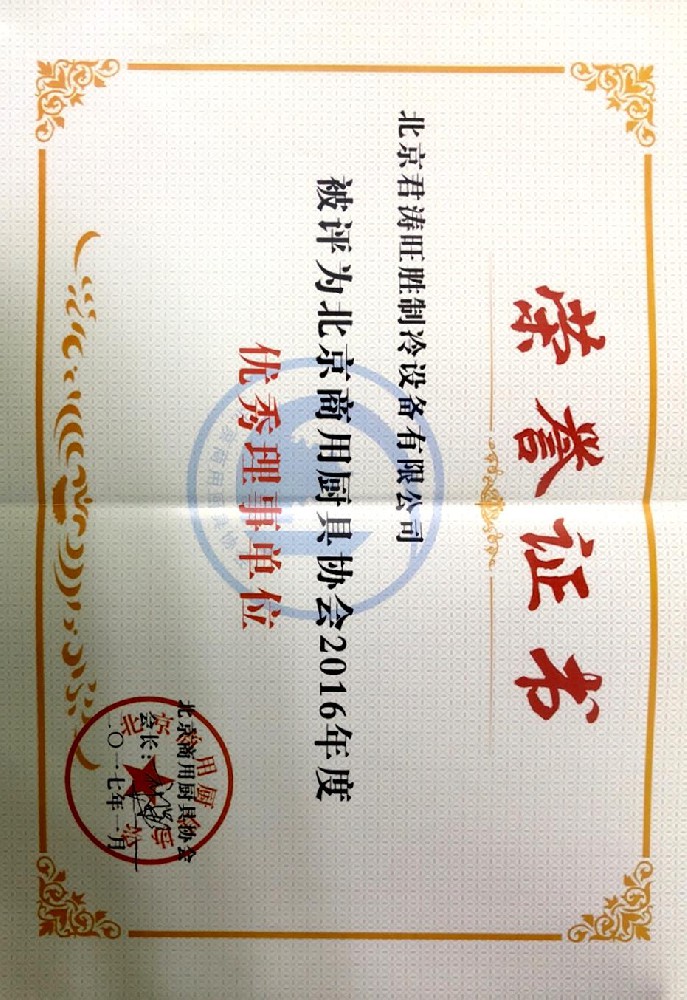 荣誉证书
北京君涛旺胜制冷设备有限公司
被评为北京商用厨具协会2016年度
优秀理事单位
北京商用厨具协会
会长：
二〇一七年一月